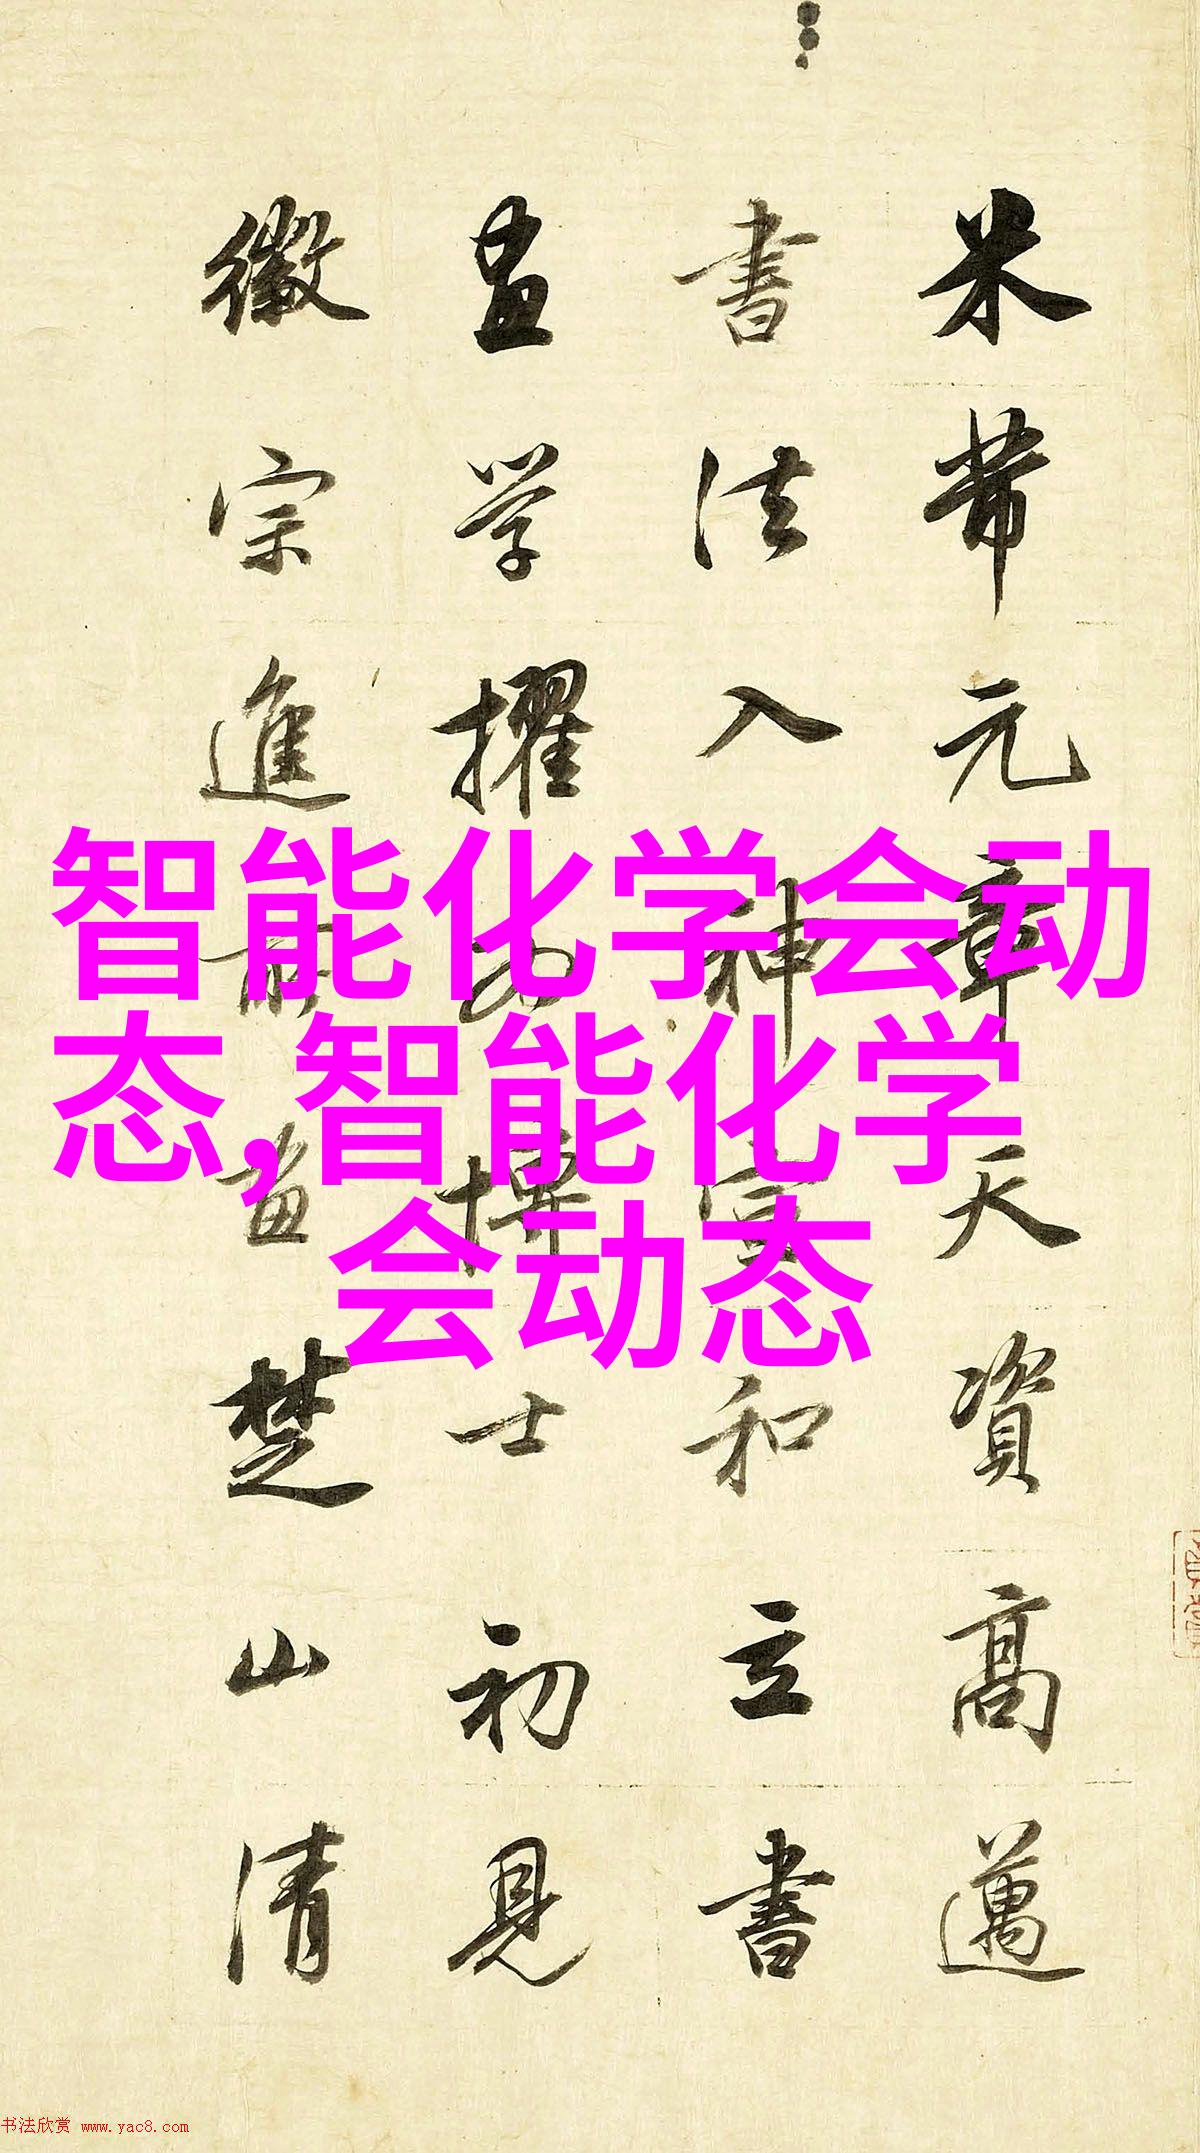 米芾元章天資高邁
書法入神宣和立書
畫学擢為博士初見
徽宗進所畫楚山清
智能化学会动
态,智能化学
会动态
书法欣赏 www.yac8.com